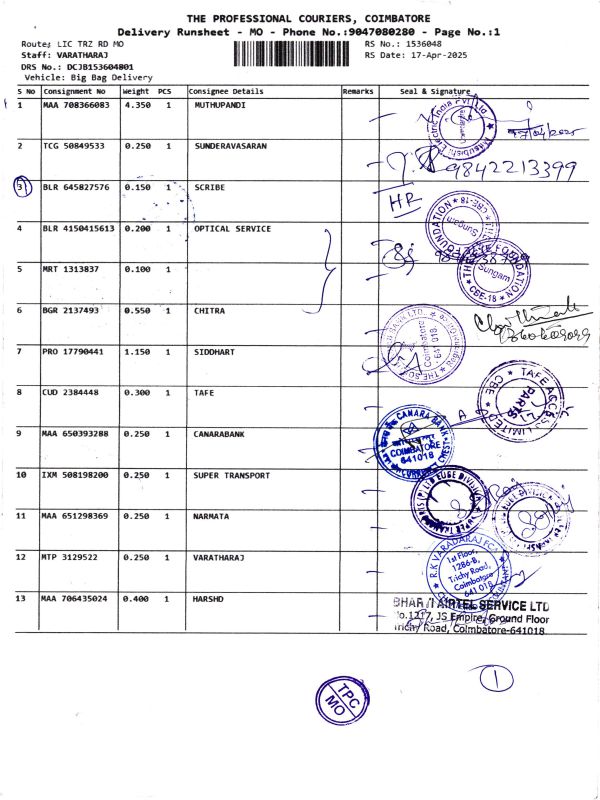 THE PROFESSIONAL COURIERS, COIMBATORE
Delivery Runsheet - MO - Phone No.:9047080280 - Page No.:1
Route: LIC TRZ RD MO
RS No.: 1536048
Staff: VARATHARAJ
RS Date: 17-Apr-2025
DRS No.: DCJB153604801
Vehicle: Big Bag Delivery
S No Consignment No Weight PCS Consignee Details Remarks Seal & Signature
1 MAA 708366083 4.350 1 MUTHUPANDI
2 TCG 50849533 0.250 1 SUNDERAVASARAN
9842213399
3 BLR 645827576 0.150 1 SCRIBE
HR
4 BLR 4150415613 0.200 1 OPTICAL SERVICE
5 MRT 1313837 0.100 1
Sungam
CBE-18
6 BGR 2137493 0.550 1 CHITRA
Coimbatore
641018
7 PRO 17790441 1.150 1 SIDDHART
8 CUD 2384448 0.300 1 TAFE
TAFE ACCESS LIMITED
CBE
PARTS
9 MAA 650393288 0.250 1 CANARABANK
CANARA BANK
COIMBATORE
641018
10 IXM 508198200 0.250 1 SUPER TRANSPORT
11 MAA 651298369 0.250 1 NARMATA
12 MTP 3129522 0.250 1 VARATHARAJ
R.K VARADARAJ FCA
1st Floor,
1286-B,
Trichy Road,
Coimbatore
641 018
13 MAA 706435024 0.400 1 HARSHD
BHARTI AIRTEL SERVICE LTD
No.1217, JS Empire, Ground Floor
Trichy Road, Coimbatore-641018
1
TPC
MO